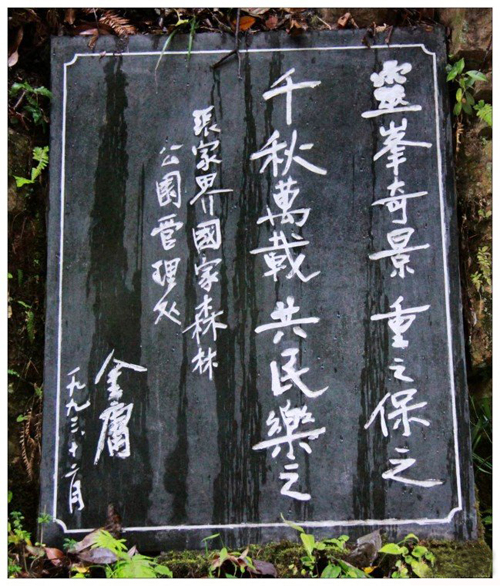 靈峯奇景 重之保之
千秋萬載 共民樂之
張家界國家森林
公園管理处
金庸
一九九三.十二月